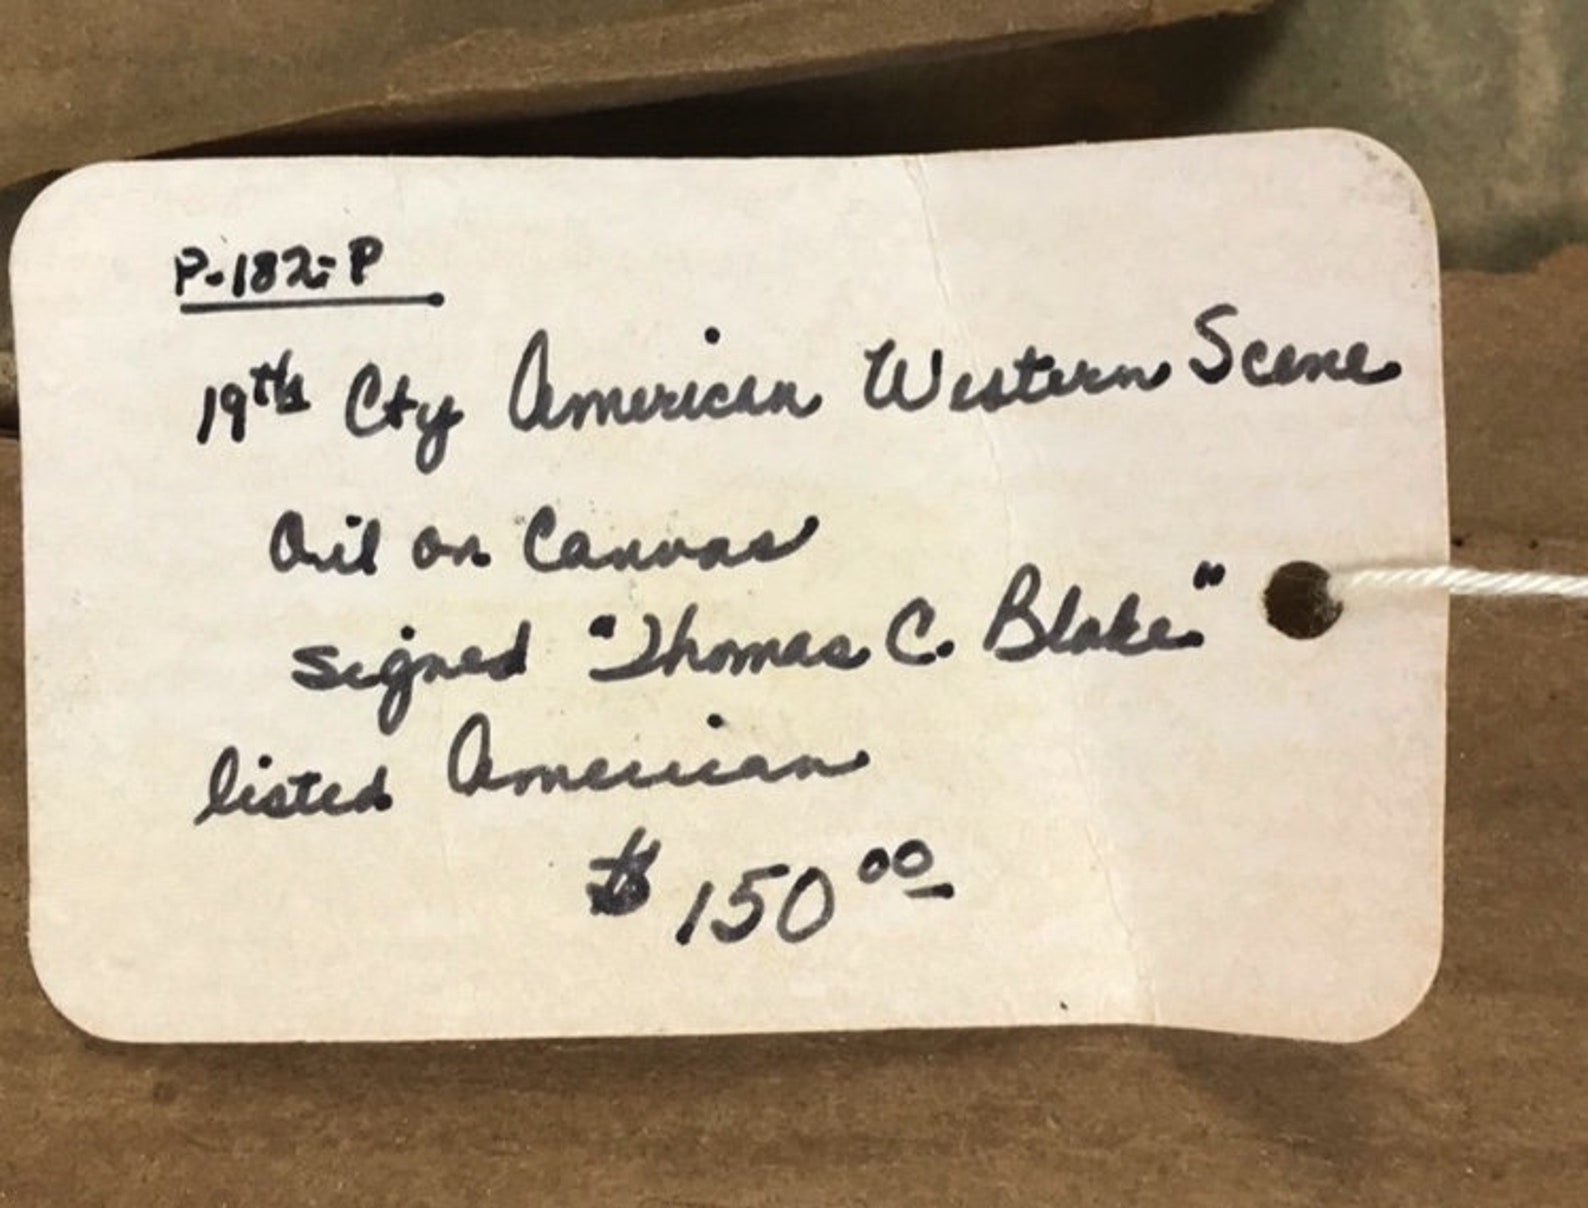 P-182-P
19th Cty American Western Scene
Oil on Canvas
signed "Thomas C. Blake"
listed American
$150.00